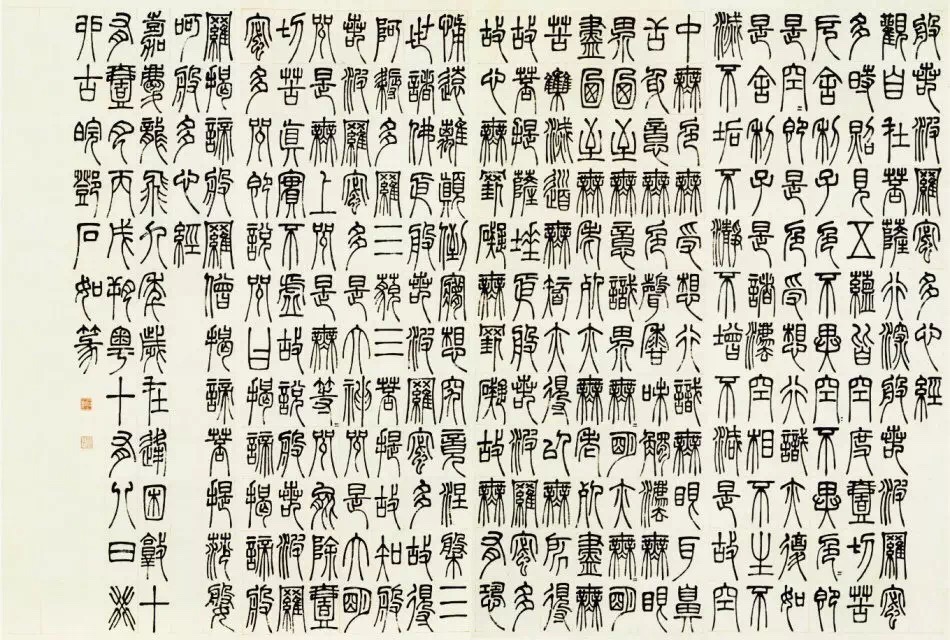 般若波羅蜜多心經
觀自在菩薩行深般若波羅蜜
多時照見五蘊皆空度壹切苦
厄舍利子色不異空=不異色即
是空=即是色受想行識亦復如
是舍利子是諸法空相不生不
滅不垢不瀞不增不減是故空
中無色無受想行識無眼耳鼻
舌身意無色聲香味觸法無眼
界乃至無意識界無=明亦無明
盡乃至無老死亦無老死盡無
苦集滅道無智亦得以無所得
故菩提薩埵依般若波羅蜜多
故心無罣礙無罣礙故無有恐
怖遠離顛倒夢想究竟涅槃三
世諸佛依般若波羅蜜多故得
阿耨多羅三藐三菩提故知般
若波羅蜜多是大神咒是大明
咒是無上咒是無等=咒能除壹
切苦真實不虛故說般若波羅
蜜多咒即說咒曰揭諦揭諦般
羅揭諦般羅僧揭諦菩提薩婆
呵般多心經
嘉慶龍飛九年歲在逢困敦十
有壹月丙戌朔粵十有八日癸
卯古皖鄧石如篆